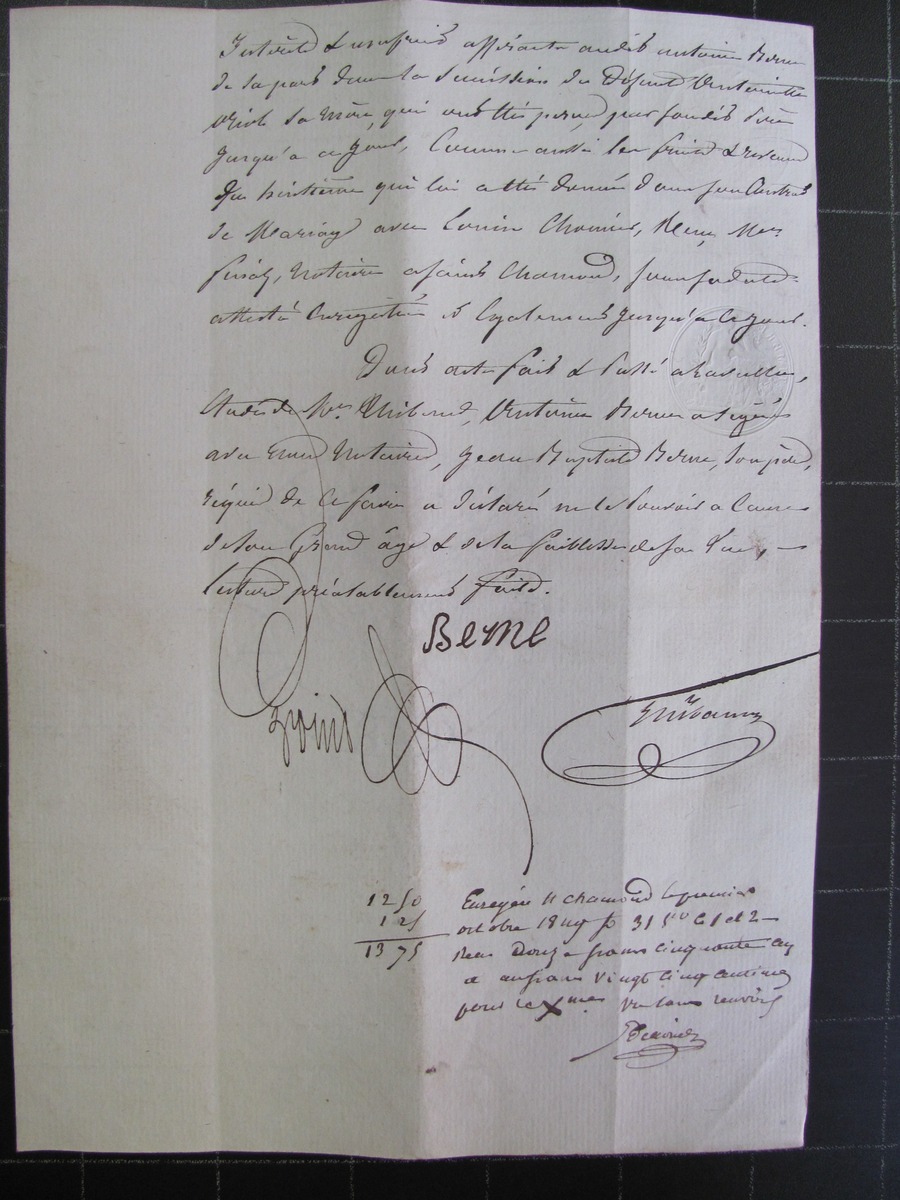 Intérêts & usufruit afférants audit antoine Berne
de sa part dans la succession de Défunte Antoinette
sa mère, qui ont été perçus par sondit père
jusqu'à ce jour, Comme aussi les fruits & revenus
du huitième qui lui a été donné dans son Contrat
de Mariage avec Louise Chomier, Reçu Me
Finaz, Notaire a saint Chamond,
également jusqu'à ce jour.
Dont acte fait & Passé
étude de Me Thibaud, Antoine Berne a signé
avec nous Notaires, jean Baptiste Berne, son père,
réquis de ce faire a déclaré ne le pouvoir a Cause
de son Grand âge & de la faiblesse de sa Vue,
lecture préalablement faite.
Berne
12 50 Enregistré St chamond le premier
1 25 octobre 18 fo 31 Vo C 1 et 2
13 75 Reçu Douze francs cinquante cent
et un franc vingt cinq centimes
pour le Xme